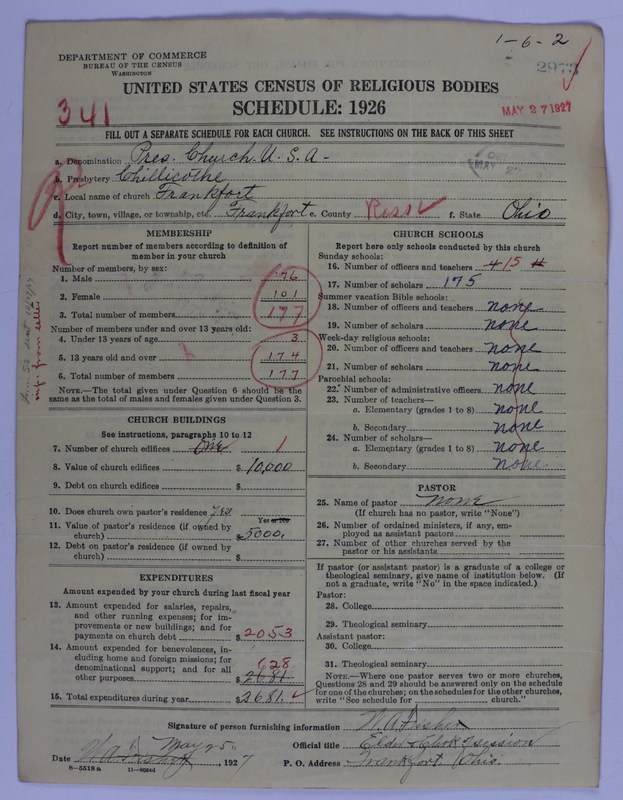 1-6-2
2973
DEPARTMENT OF COMMERCE
BUREAU OF THE CENSUS
WASHINGTON
UNITED STATES CENSUS OF RELIGIOUS BODIES
SCHEDULE: 1926
341
MAY 27 1927
FILL OUT A SEPARATE SCHEDULE FOR EACH CHURCH. SEE INSTRUCTIONS ON THE BACK OF THIS SHEET
a. Denomination Pres. Church. U.S.A-
b. Presbytery Chillicothe
c. Local name of church Frankfort
d. City, town, village, or township, etc. Frankfort e. County Ross f. State Ohio
MEMBERSHIP
Report number of members according to definition of member in your church
Number of members, by sex:
1. Male 76
2. Female 101
3. Total number of members 177
Number of members under and over 13 years old:
4. Under 13 years of age 3
5. 13 years old and over 174
6. Total number of members 177
NOTE.—The total given under Question 6 should be the same as the total of males and females given under Question 3.
CHURCH BUILDINGS
See instructions, paragraphs 10 to 12
7. Number of church edifices One 1
8. Value of church edifices $10,000
9. Debt on church edifices $
10. Does church own pastor's residence yes
Yes or No
11. Value of pastor's residence (if owned by church) $5000.
12. Debt on pastor's residence (if owned by church) $
EXPENDITURES
Amount expended by your church during last fiscal year
13. Amount expended for salaries, repairs, and other running expenses; for improvements or new buildings; and for payments on church debt $2053
14. Amount expended for benevolences, including home and foreign missions; for denominational support; and for all other purposes $2681 628
15. Total expenditures during year $2681.
CHURCH SCHOOLS
Report here only schools conducted by this church
Sunday schools:
16. Number of officers and teachers 15
17. Number of scholars 175
Summer vacation Bible schools:
18. Number of officers and teachers none
19. Number of scholars none
Week-day religious schools:
20. Number of officers and teachers none
21. Number of scholars none
Parochial schools:
22. Number of administrative officers none
23. Number of teachers—
a. Elementary (grades 1 to 8) none
b. Secondary none
24. Number of scholars—
a. Elementary (grades 1 to 8) none
b. Secondary none
PASTOR
25. Name of pastor none
(If church has no pastor, write "None")
26. Number of ordained ministers, if any, employed as assistant pastors
27. Number of other churches served by the pastor or his assistants
If pastor (or assistant pastor) is a graduate of a college or theological seminary, give name of institution below. (If not a graduate, write "No" in the space indicated.)
Pastor:
28. College
29. Theological seminary
Assistant pastor:
30. College
31. Theological seminary
NOTE.—Where one pastor serves two or more churches, Questions 28 and 29 should be answered only on the schedule for one of the churches; on the schedules for the other churches, write "See schedule for church."
Signature of person furnishing information W. A. Fisher
Official title Elder & Clerk of session
Date May 25, 1927
P. O. Address Frankfort Ohio.
8-5518a 11-9554d